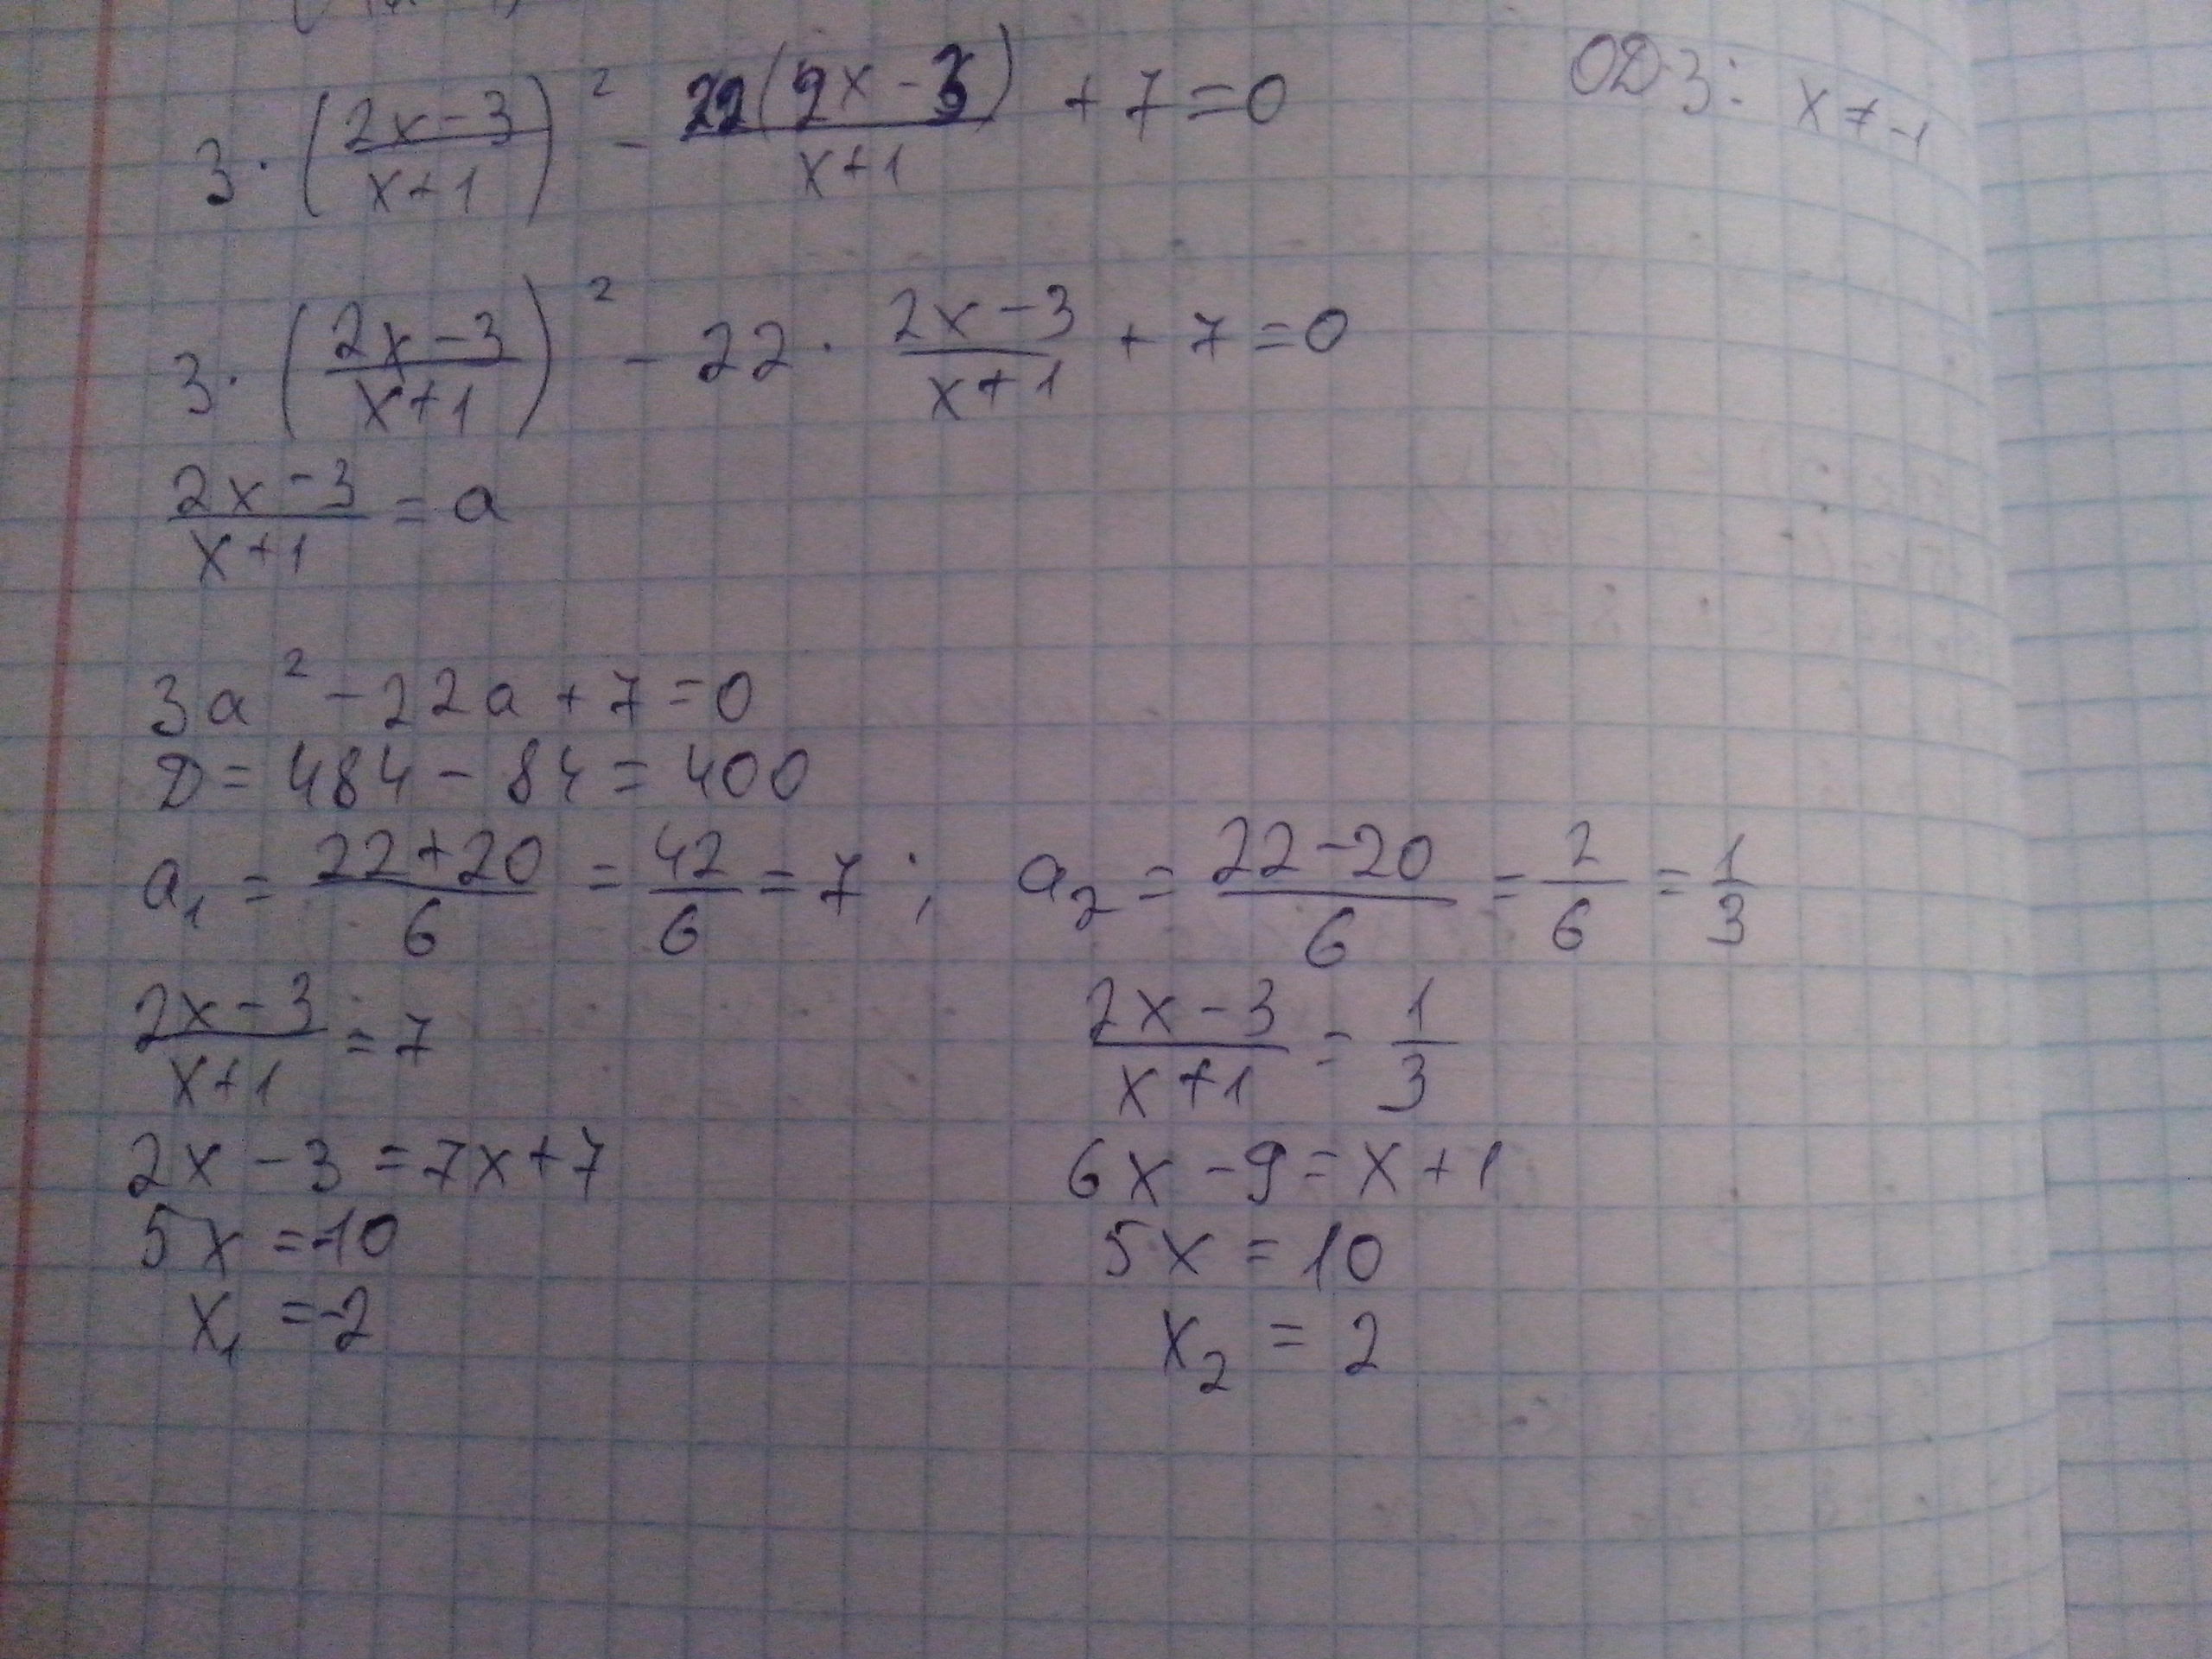 3·((2x-3)/(x+1))² - 22(2x-3)/(x+1) + 7=0   ОДЗ: x≠-1
3·((2x-3)/(x+1))² - 22·(2x-3)/(x+1) + 7=0
(2x-3)/(x+1) = a
3a²-22a+7=0
D=484-84=400
a₁=(22+20)/6=42/6=7; a₂=(22-20)/6=2/6=1/3
(2x-3)/(x+1)=7   (2x-3)/(x+1)=1/3
2x-3=7x+7   6x-9=x+1
5x=-10   5x=10
x₁=-2   x₂=2